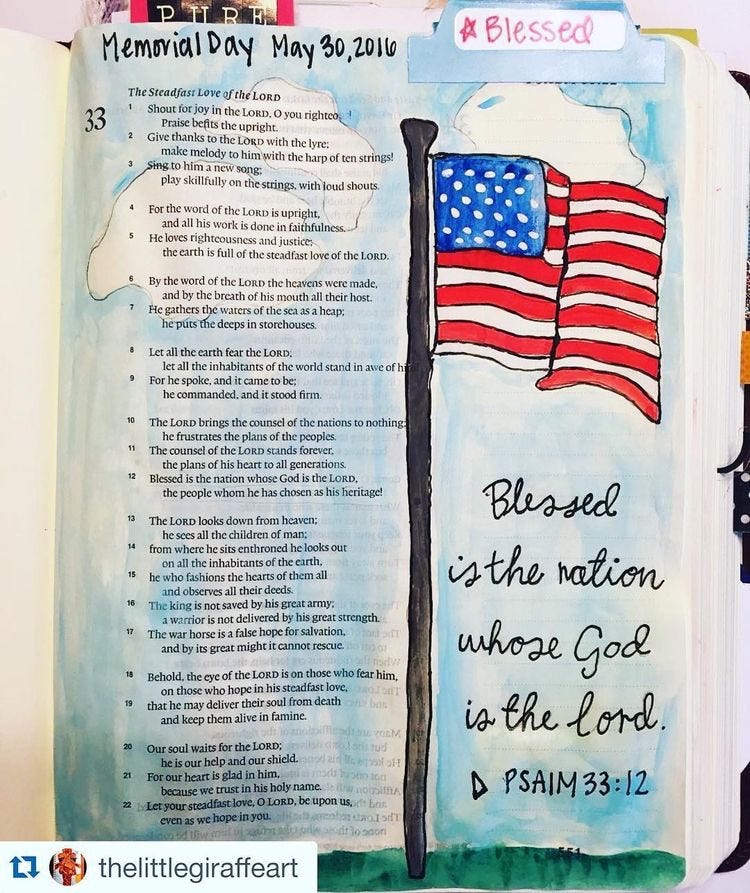 PURE
Memorial Day May 30, 2016
Blessed
The Steadfast Love of the LORD
33
1 Shout for joy in the LORD, O you righteo
Praise befits the upright.
2 Give thanks to the LORD with the lyre;
make melody to him with the harp of ten strings!
3 Sing to him a new song;
play skillfully on the strings, with loud shouts.
4 For the word of the LORD is upright,
and all his work is done in faithfulness.
5 He loves righteousness and justice;
the earth is full of the steadfast love of the LORD.
6 By the word of the LORD the heavens were made,
and by the breath of his mouth all their host.
7 He gathers the waters of the sea as a heap;
he puts the deeps in storehouses.
8 Let all the earth fear the LORD;
let all the inhabitants of the world stand in awe of hi
9 For he spoke, and it came to be;
he commanded, and it stood firm.
10 The LORD brings the counsel of the nations to nothing;
he frustrates the plans of the peoples.
11 The counsel of the LORD stands forever,
the plans of his heart to all generations.
12 Blessed is the nation whose God is the LORD,
the people whom he has chosen as his heritage!
13 The LORD looks down from heaven;
he sees all the children of man;
14 from where he sits enthroned he looks out
on all the inhabitants of the earth,
15 he who fashions the hearts of them all
and observes all their deeds.
16 The king is not saved by his great army;
a warrior is not delivered by his great strength.
17 The war horse is a false hope for salvation,
and by its great might it cannot rescue.
18 Behold, the eye of the LORD is on those who fear him,
on those who hope in his steadfast love,
19 that he may deliver their soul from death
and keep them alive in famine.
20 Our soul waits for the LORD;
he is our help and our shield.
21 For our heart is glad in him,
because we trust in his holy name.
22 Let your steadfast love, O LORD, be upon us,
even as we hope in you.
Blessed
is the nation
whose God
is the lord.
PSAlM 33:12
551
thelittlegiraffeart